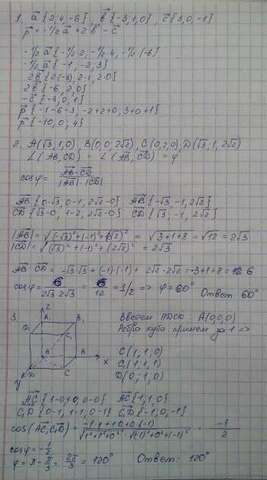 1. a {2,4,-6}, b {-3,1,0}, c {3,0,-1}
p = -1/2 a + 2 b - c
-1/2 a {-1/2·2, -1/2·4, -1/2·(-6)}
-1/2 a {-1,-2,3}
2b {2·(-3), 2·1, 2·0}
2b {-6,2,0}
-c {-3,0,1}
p {-1-6-3, -2+2+0, 3+0+1}
p {-10,0,4}
2. A(√3,1,0), B(0,0,2√2), C(0,2,0), D(√3,1,2√2)
∠(AB,CD) = ∠(AB,CD) = φ
cosφ = AB·CD / |AB|·|CD|
AB {0-√3, 0-1, 2√2-0} AB {-√3,-1,2√2}
CD {√3-0, 1-2, 2√2-0} CD {√3,-1,2√2}
|AB| = √(-√3)²+(-1)²+(2√2)² = √3+1+8 = √12 = 2√3
|CD| = √(√3)²+(-1)²+(2√2)² = 2√3
AB·CD = -√3·√3 + (-1)·(-1) + 2√2·2√2 = -3+1+8 = 6
cosφ = 6 / 2√3·2√3 = 6/12 = 1/2 => φ = 60° Ответ 60°
3. Введем ПДСК A(0,0,0)
Ребро куба примем за 1 =>
C(1,1,0)
C₁(1,1,1)
D(0,1,0)
AC {1-0,1-0,0-0} AC {1,1,0}
C₁D {0-1,1-1,0-1} C₁D {-1,0,-1}
cos(AC,C₁D) = -1·1+1·0+0·(-1) / √1²+1²+0²·√(-1)²+0²+(-1)² = -1/2
cosφ = -1/2
φ = π - π/3 = 2π/3 = 120° Ответ: 120°